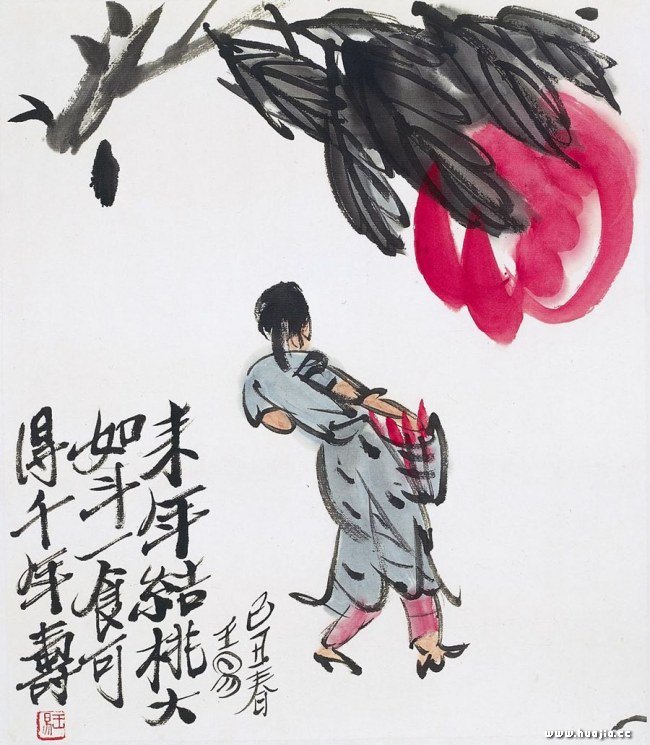 来年結桃大
如斗一食可
得千年壽
己丑春
王易
王易
www.huajia.cc